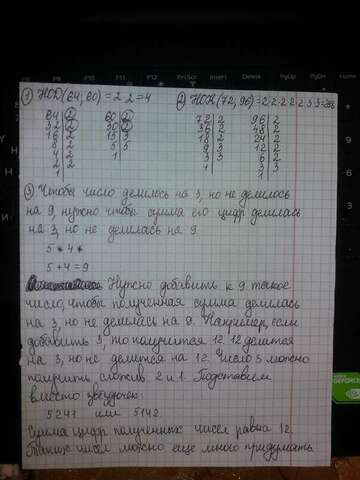 F9 F10 F11 F12 PrtScr Insert Delete PgUp PgDn
① НОД(64,60)=2·2=4
② НОК(72,96)=2·2·2·2·2·3·3=288
64 2 60 2
32 2 30 2
16 2 15 3
8 2 5 5
4 2 1
2 2
1
72 2 96 2
36 2 48 2
18 2 24 2
9 3 12 2
3 3 6 2
1 3 3
1
③ Чтобы число делилось на 3, но не делилось
на 9, нужно чтобы сумма его цифр делилась
на 3, но не делилась на 9.
5 * 4 *
5+4=9
Нужно добавить к 9 такое
число, чтобы полученная сумма делилась
на 3, но не делилась на 9. Например, если
добавить 3, то получится 12. 12 делится
на 3, но не делится на 12. Число 3 можно
получить, сложив 2 и 1. Подставим
вместо звёздочек:
5241 или 5142
Сумма цифр полученных чисел равна 12.
Таких чисел можно ещё много придумать.
GEFORCE